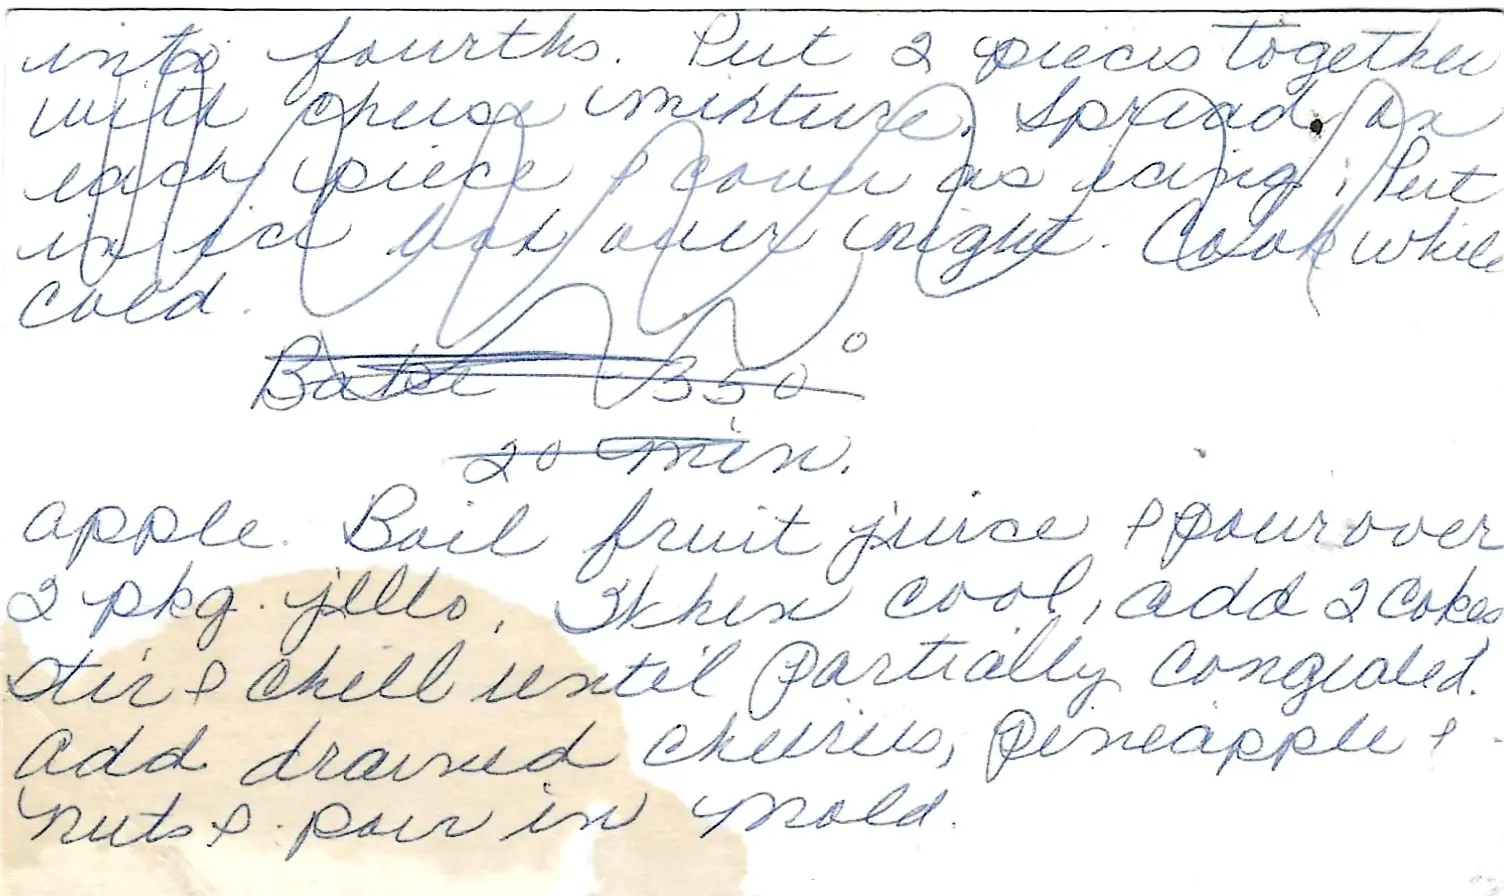 into fourths. Put 2 pieces together
with cheese mixture. Spread on
each piece & cover as icing. Put
in ice box over night. Cook while
cold.
Bake 350°
20 min.
apple. Boil fruit juice & pour over
2 pkg. jello. When cool, add 2 Cokes
stir & chill until partially congealed.
Add drained cherries, pineapple &
nuts & pour in mold.